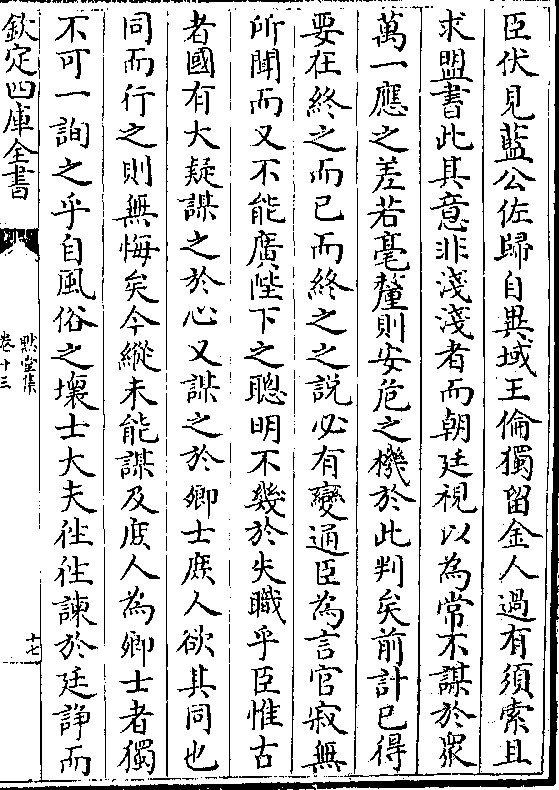 臣伏見藍公佐歸自異域王倫獨留金人過有須索且
求盟書此其意非淺淺者而朝廷視以為常不謀於衆
萬一應之差若毫釐則安危之機於此判矣前計已得
要在終之而已而終之之説必有變通臣為言官寂無
所聞而又不能廣陛下之聰明不幾於失職乎臣惟古
者國有大疑謀之於心又謀之於卿士庶人欲其同也
同而行之則無悔矣今縱未能謀及庶人為卿士者獨
不可一詢之乎自風俗之壞士大夫徃徃諫於廷諍而
欽定四庫全書
默堂集
卷十三
十七